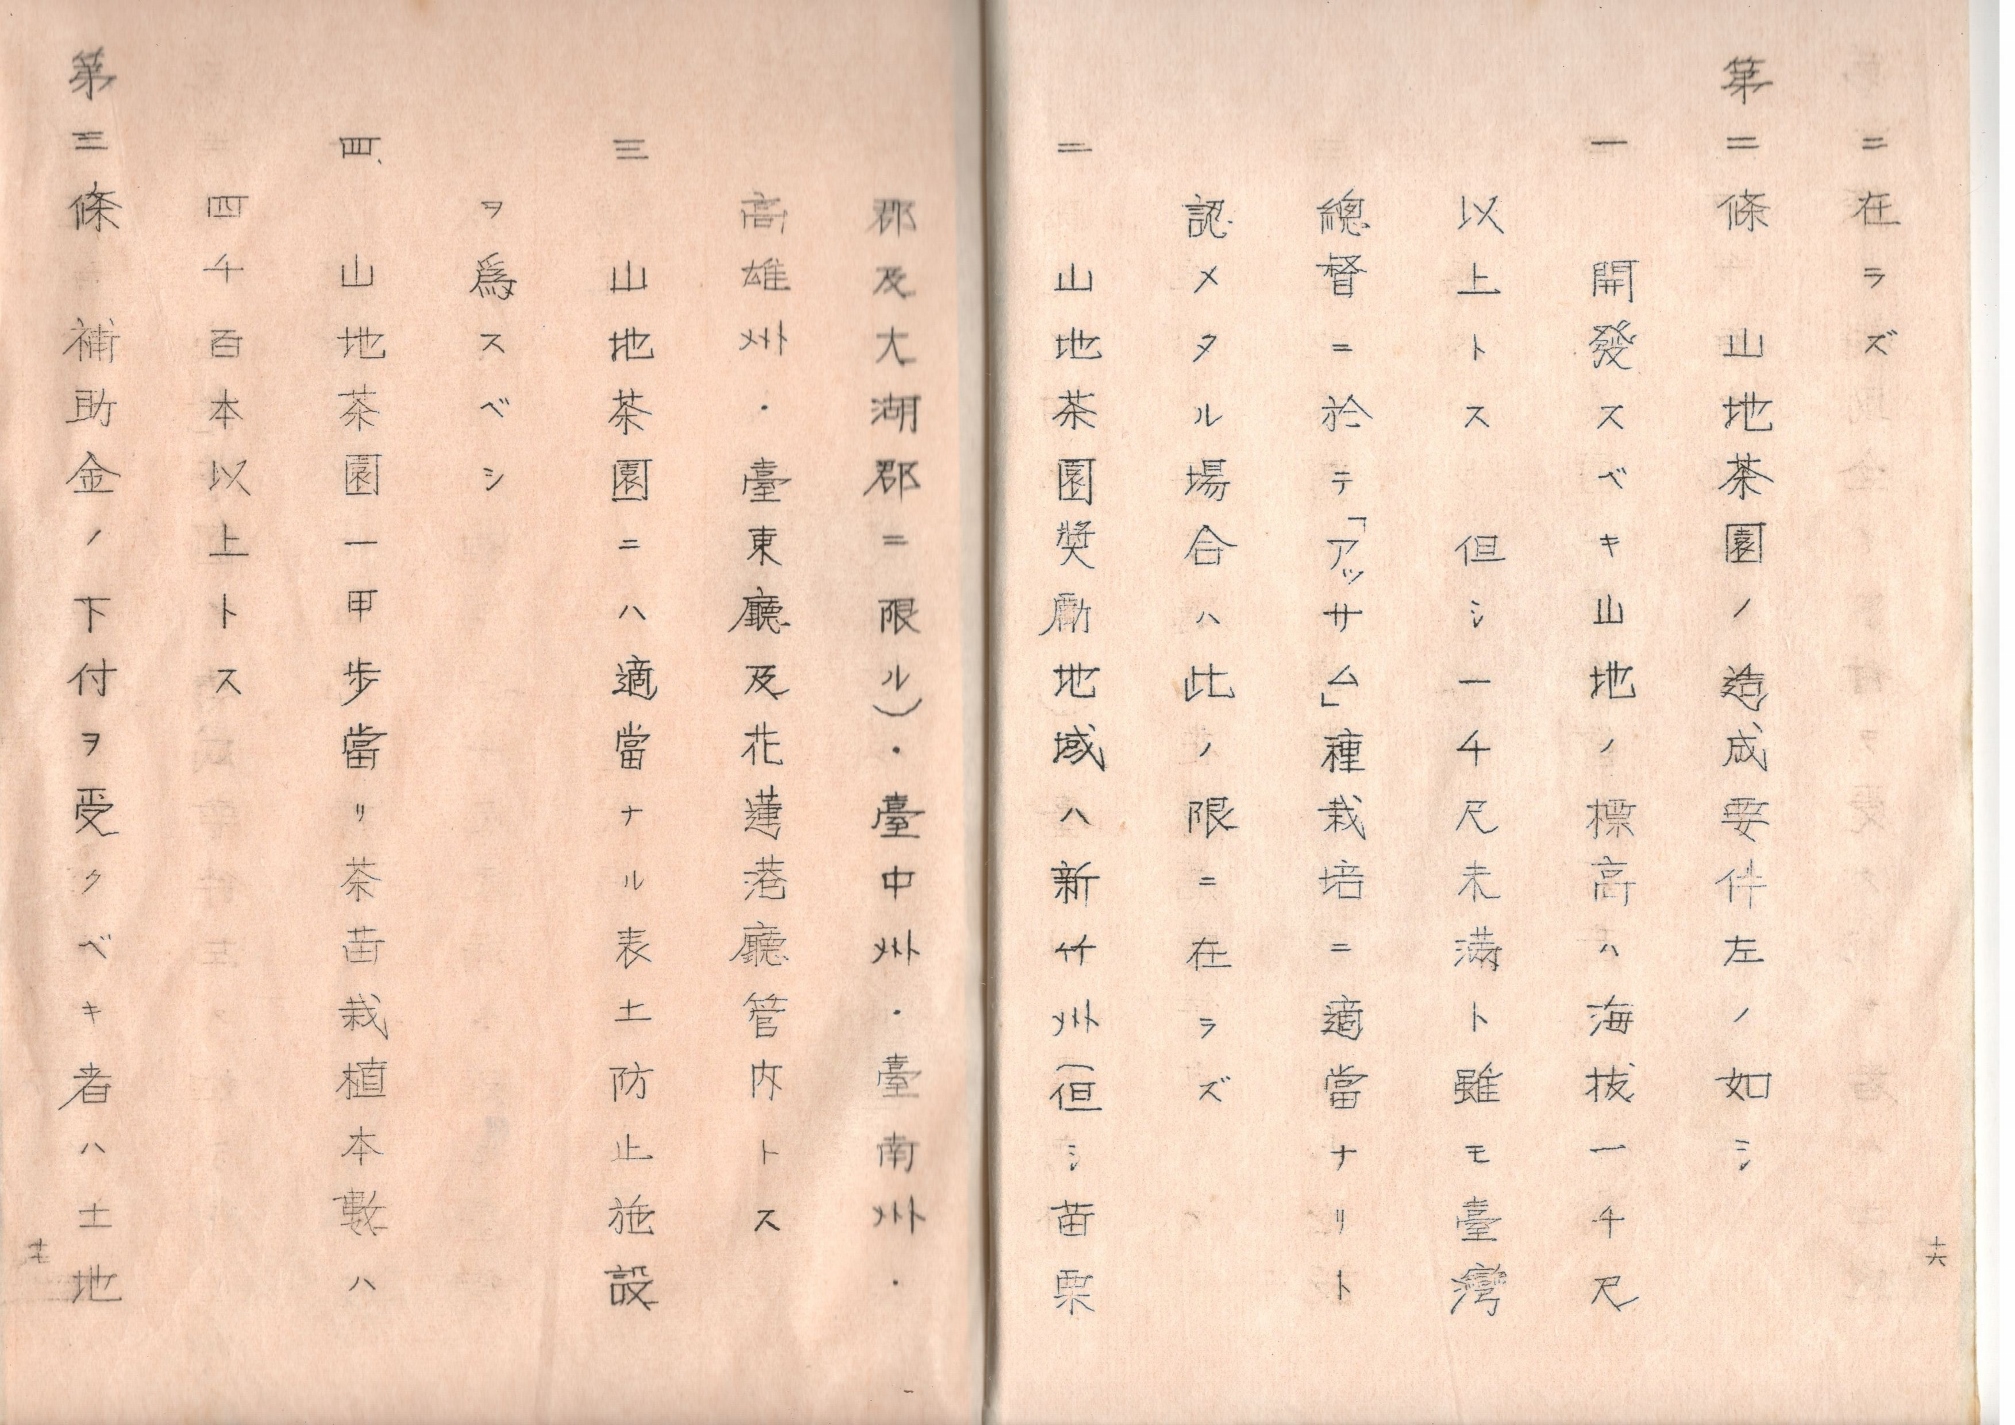 ニ在ラズ
第二條　山地茶園ノ造成要件左ノ如シ
一　開發スベキ山地ノ標高ハ海拔一千尺
以上トス　但シ一千尺未滿ト雖モ臺灣
總督ニ於テ「アッサム」種栽培ニ適當ナリト
認メタル場合ハ此ノ限ニ在ラズ
二　山地茶園奬勵地域ハ新竹州（但シ苗栗
十六
郡及大湖郡ニ限ル）・臺中州・臺南州・
高雄州・臺東廳及花蓮港廳管内トス
三　山地茶園ニハ適當ナル表土防止施設
ヲ爲スベシ
四、山地茶園一甲步當リ茶苗栽植本數ハ
四千百本以上トス
第三條　補助金ノ下付ヲ受クベキ者ハ土地
十七